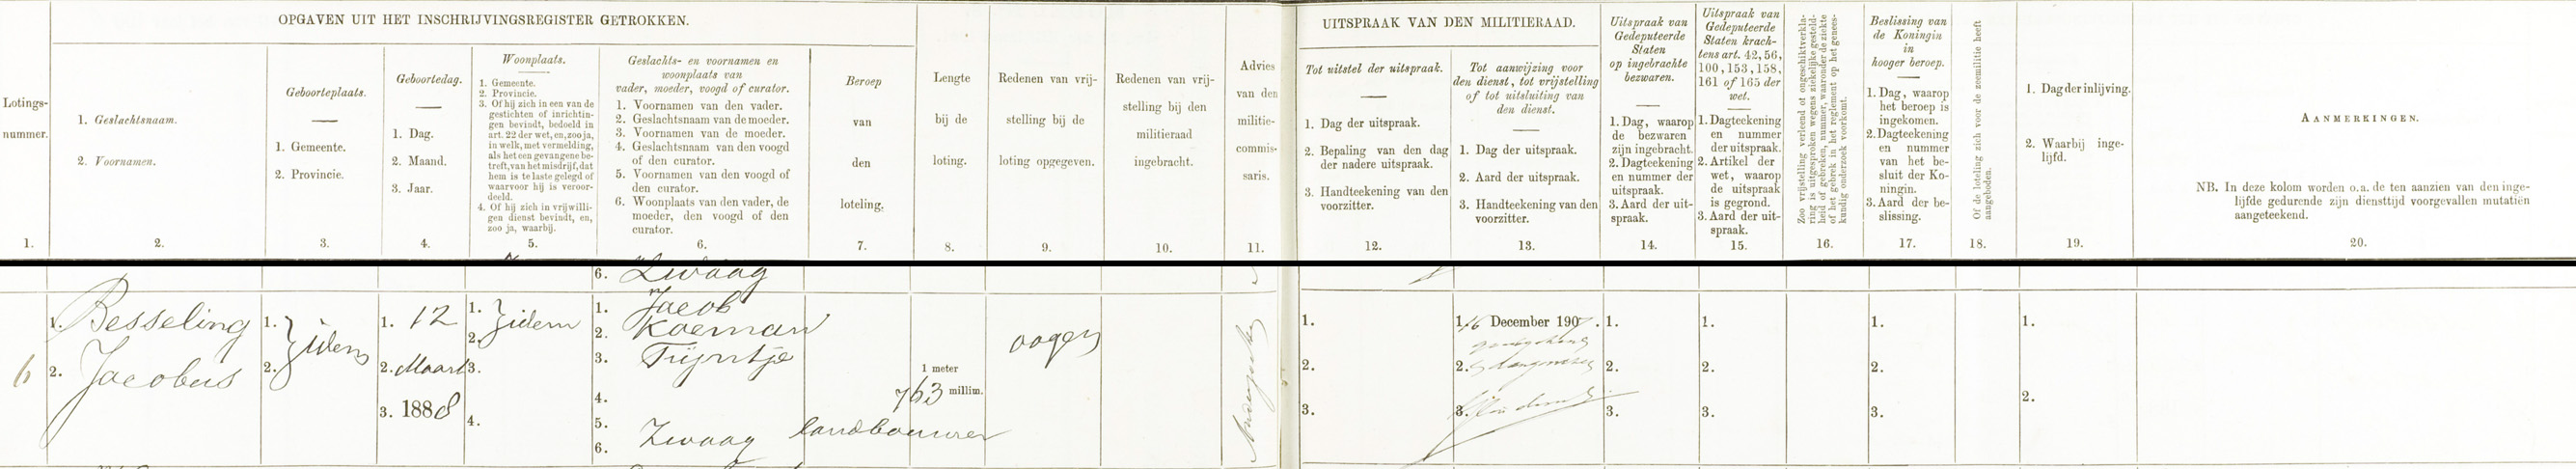 OPGAVEN UIT HET INSCHRIJVINGSREGISTER GETROKKEN.
Lotings-
nummer.
1.
1. Geslachtsnaam.
2. Voornamen.
2.
Geboorteplaats.
1. Gemeente.
2. Provincie.
3.
Geboortedag.
1. Dag.
2. Maand.
3. Jaar.
4.
Woonplaats.
1. Gemeente.
2. Provincie.
3. Of hij zich in een van de
gestichten of inrichtin-
gen bevindt, bedoeld in
art. 22 der wet, en, zoo ja,
in welk, met vermelding,
als het een gevangene be-
treft, van het misdrijf, dat
hem is te laste gelegd of
waarvoor hij is veroor-
deeld.
4. Of hij zich in vrijwilli-
gen dienst bevindt, en,
zoo ja, waarbij.
5.
Geslachts- en voornamen en
woonplaats van
vader, moeder, voogd of curator.
1. Voornamen van den vader.
2. Geslachtsnaam van de moeder.
3. Voornamen van de moeder.
4. Geslachtsnaam van den voogd
of den curator.
5. Voornamen van den voogd of
den curator.
6. Woonplaats van den vader, de
moeder, den voogd of den
curator.
6.
Beroep
van
den
loteling.
7.
Lengte
bij de
loting.
8.
Redenen van vrij-
stelling bij de
loting opgegeven.
9.
Redenen van vrij-
stelling bij den
militieraad
ingebracht.
10.
Advies
van den
militie-
commis-
saris.
11.
UITSPRAAK VAN DEN MILITIERAAD.
Tot uitstel der uitspraak.
1. Dag der uitspraak.
2. Bepaling van den dag
der nadere uitspraak.
3. Handteekening van den
voorzitter.
12.
Tot aanwijzing voor
den dienst, tot vrijstelling
of tot uitsluiting van
den dienst.
1. Dag der uitspraak.
2. Aard der uitspraak.
3. Handteekening van den
voorzitter.
13.
Uitspraak van
Gedeputeerde
Staten
op ingebrachte
bezwaren.
1. Dag, waarop
de bezwaren
zijn ingebracht.
2. Dagteekening
en nummer der
uitspraak.
3. Aard der uit-
spraak.
14.
Uitspraak van
Gedeputeerde
Staten krach-
tens art. 42, 56,
100, 153, 158,
161 of 165 der
wet.
1. Dagteekening
en nummer
der uitspraak.
2. Artikel der
wet, waarop
de uitspraak
is gegrond.
3. Aard der uit-
spraak.
15.
Zoo vrijstelling verleend of ongeschiktverkla-
ring is uitgesproken wegens ziekelijke gesteld-
heid of gebreken, nummer, waaronder de ziekte
of het gebrek in het reglement op het genees-
kundig onderzoek voorkomt.
16.
Beslissing van
de Koningin
in
hooger beroep.
1. Dag, waarop
het beroep is
ingekomen.
2. Dagteekening
en nummer
van het be-
sluit der Ko-
ningin.
3. Aard der be-
slissing.
17.
Of de loteling zich voor de zeemilitie heeft
aangeboden.
18.
1. Dag der inlijving.
2. Waarbij inge-
lijfd.
19.
AANMERKINGEN.
NB. In deze kolom worden o.a. de ten aanzien van den inge-
lijfde gedurende zijn diensttijd voorgevallen mutatiën
aangeteekend.
20.
6. Zwaag
6
1. Besseling
2. Jacobus
1. idem
2.
1. 12
2. Maart
3. 1888
1. idem
2.
3.
4.
1. Jacob
2. Koeman
3. Trijntje
4.
5.
6. Zwaag
landbouwer
1 meter
763 millim.
oogen
1.
2.
3.
1. 16 December 1907.
2.
3.
1.
2.
3.
1.
2.
3.
1.
2.
3.
1.
2.